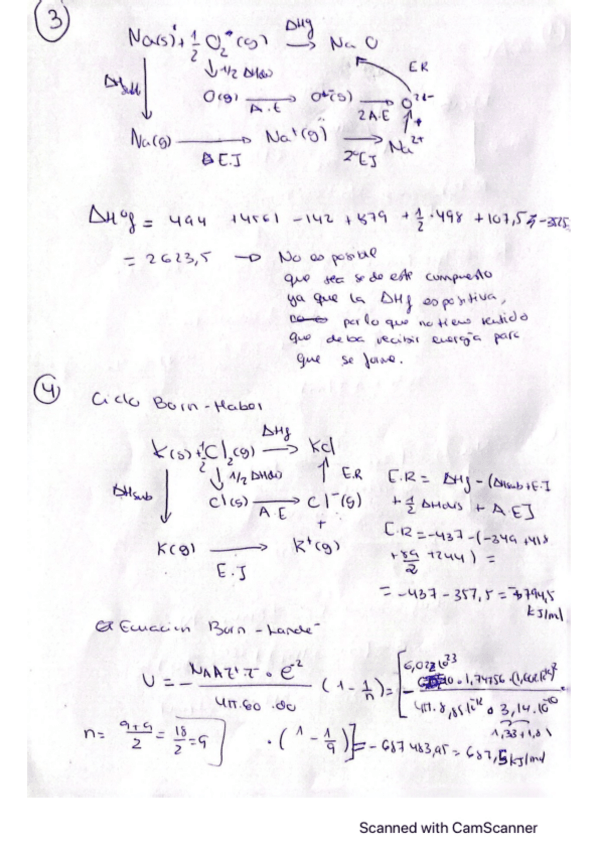 3
Na(s) + 1/2 O2 (g) → ΔHf Na O
ΔHsub ↓ 1/2 ΔHdis E.R
O(g) → A.E O-(g) → 2A.E O2-
Na(g) → E.I Na+(g) → 2ºEI Na2+
ΔHºf = 494 + 4561 - 142 + 879 + 1/2 · 498 + 107,5
= 2623,5 → No es posible
que sea se de este compuesto
ya que la ΔHf es positiva,
por lo que no tiene sentido
que deba recibir energía para
que se forme.
4 Ciclo Born-Haber
K(s) + 1/2 Cl2(g) → ΔHf KCl
ΔHsub ↓ 1/2 ΔHdis ↑ E.R
Cl(g) → A.E Cl-(g)
+
K(g) → E.I K+(g)
E.R = ΔHf - (ΔHsub + E.I
+ 1/2 ΔHdis + A.E]
E.R = -437 - (-349 + 418
+ 89/2 + 244) =
= -437 - 357,5 = -794,5
kJ/ml
Ecuación Born-Landé
U = - NA A Z+ Z- · e-2 / 4π·ε0·d0 (1 - 1/n) =
6,02 1,74756
4π·8,85 3,14·10
1,33 + 1,81
n = 9+9/2 = 18/2 = 9 · (1 - 1/9)] = -687483,95 = 687,5 kJ/mol
Scanned with CamScanner